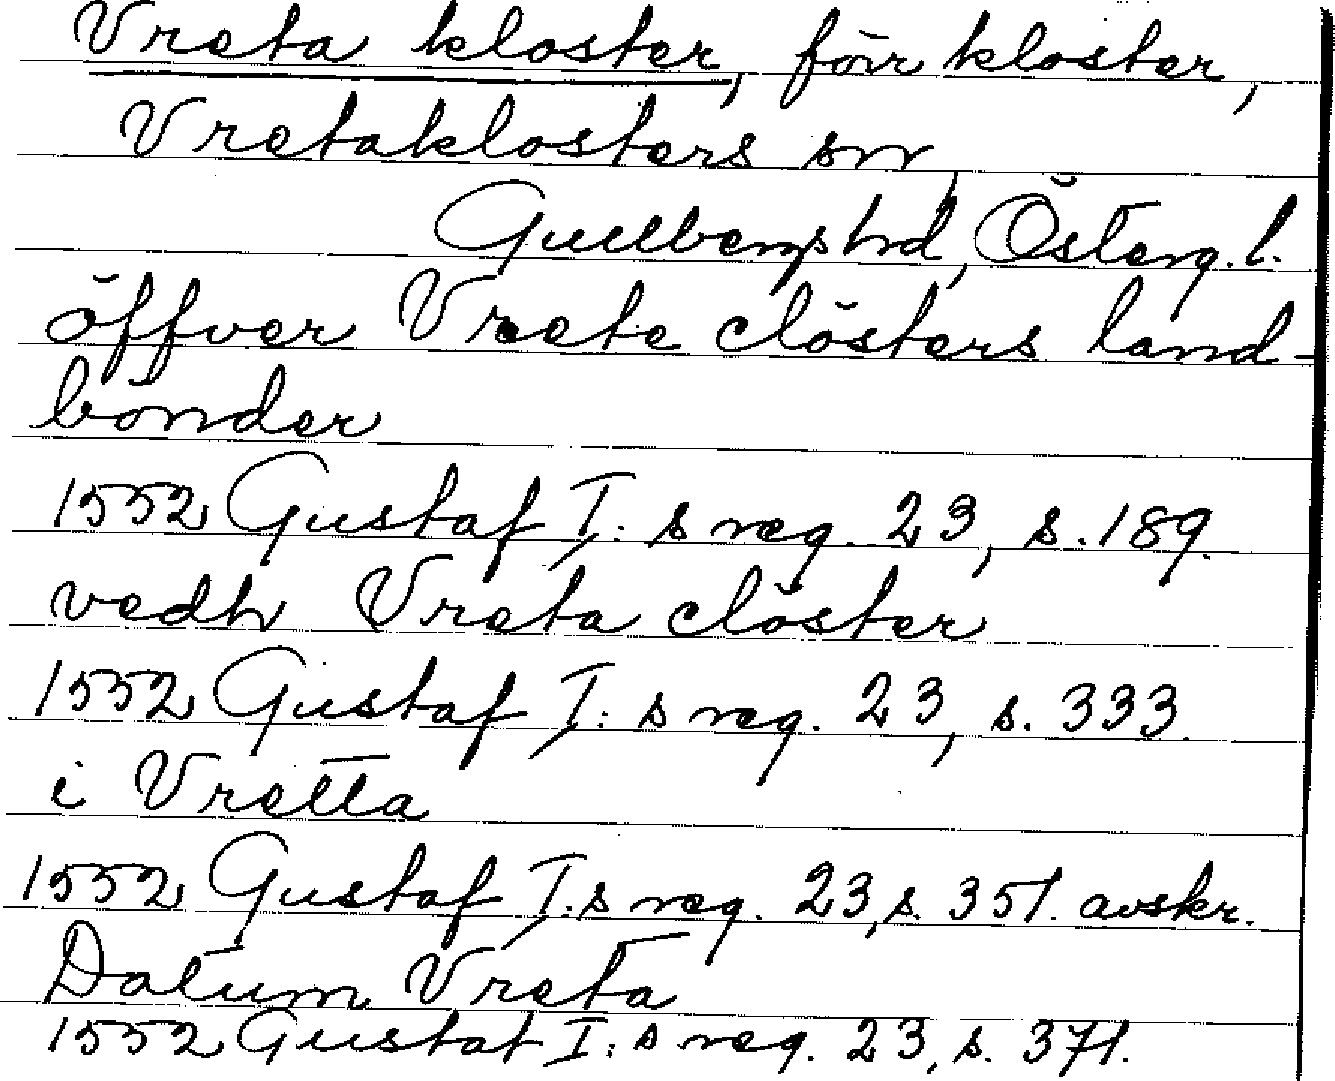 Vreta kloster, förr kloster,
Vretaklosters sn,
Gullbergs hd, Österg. l.
öffver Vrete clösters land-
bönder
1552 Gustaf I:s reg. 23, s. 189.
vedh Vreta clöster
1552 Gustaf I:s reg. 23, s. 333.
i Vretta
1552 Gustaf I:s reg. 23, s. 351. avskr.
Datum Vreta
1552 Gustaf I:s reg. 23, s. 371.